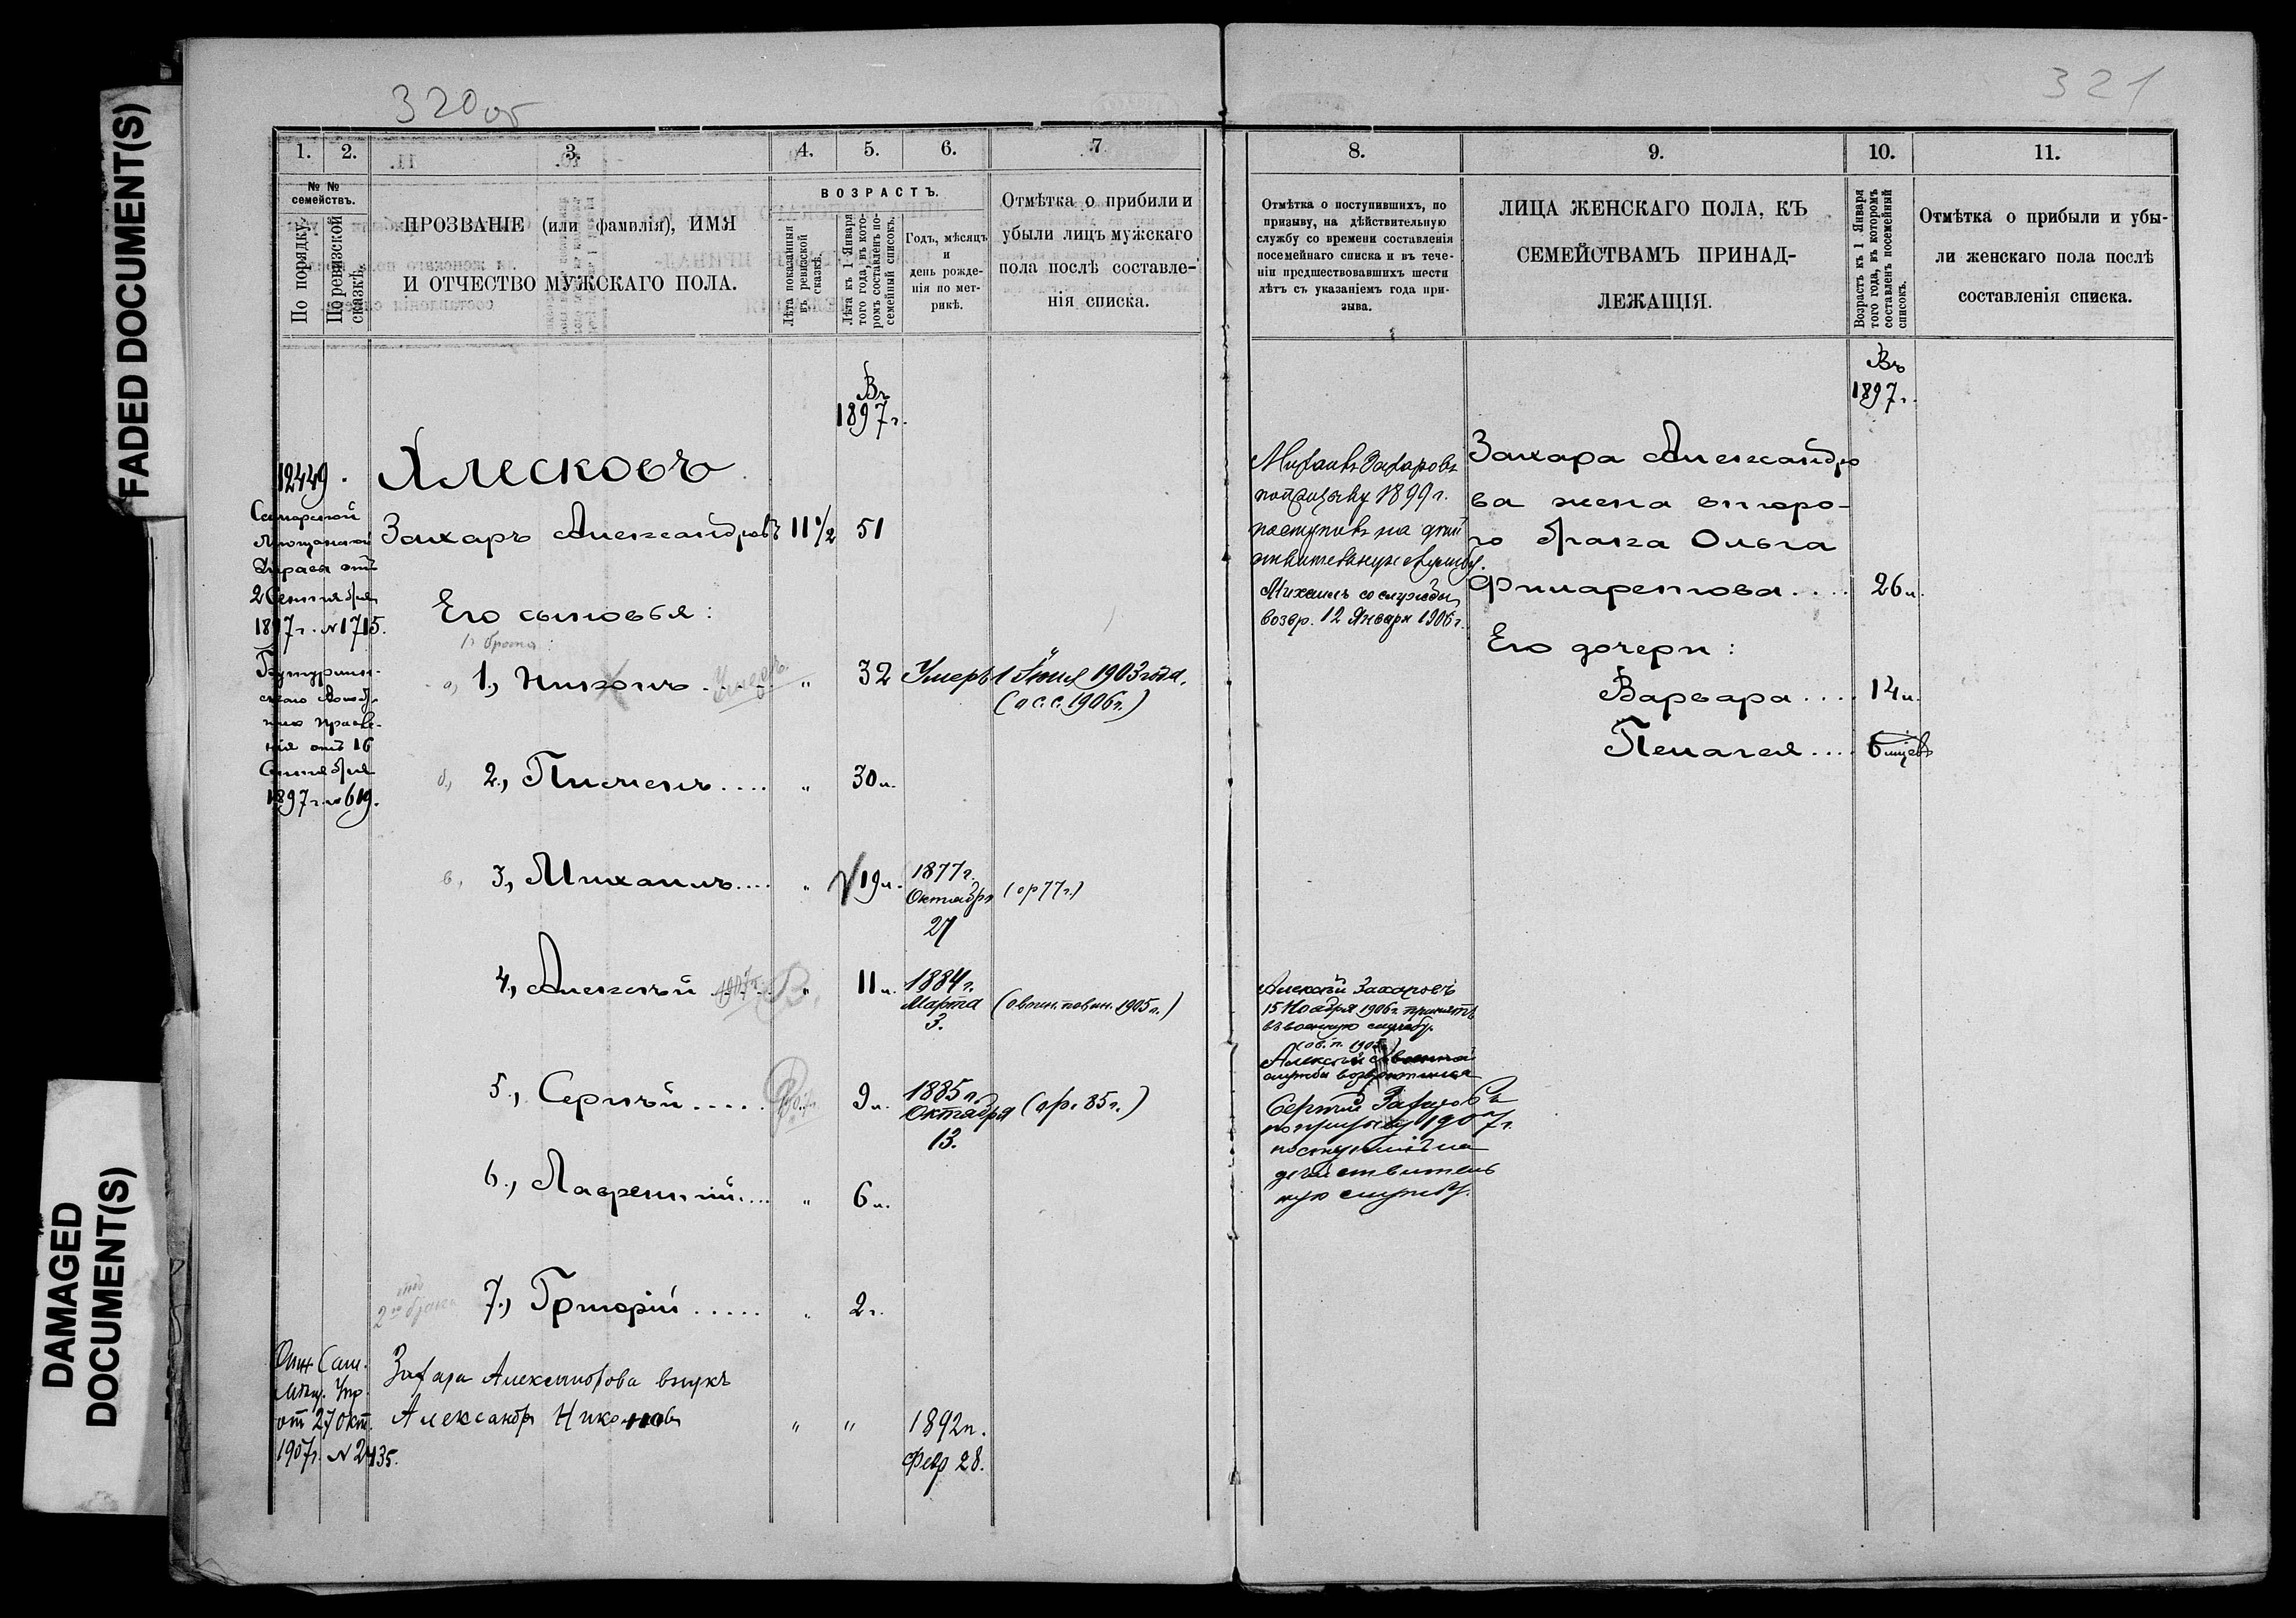 FADED DOCUMENT(S)
DAMAGED
DOCUMENT(S)
320об
321
1.
2.
3.
4.
5.
6.
7
№ №
семействъ.
По порядку.
По ревизской
сказкѣ.
ПРОЗВАНІЕ (или фамилія), ИМЯ
И ОТЧЕСТВО МУЖСКАГО ПОЛА.
ВОЗРАСТЪ.
Лѣта показанныя
въ ревизской
сказкѣ.
Лѣта къ 1 Января
того года, въ кото-
ромъ составленъ по-
семейный списокъ.
Годъ, мѣсяцъ
и
день рожде-
нія по мет-
рикѣ.
Отмѣтка о прибили и
убыли лицъ мужскаго
пола послѣ составле-
нія списка.
Въ
1897 г.
12449.
Самарской
Мѣщанской
Управы отъ
2 Сентября
1897 г. № 1715.
отъ 16
Сентября
1897 г. № 619.
Захаръ Александровъ 11 1/2 51
Его сыновья:
1 брака:
а, 1., Никонъ . . . . Умеръ " 32 Умеръ 1 Іюня 1903 года.
(о с.с. 1906 г.)
б, 2., Пименъ . . . . " 30 л.
в, 3., Михаилъ . . . . " 19 л. 1877 г.
Октября (ор 77 г.)
27
4., Алексѣй " 11 л. 1884 г.
Марта (о воин. повин. 1905 г.)
3.
5., Сергѣй . . . . . 9 л. 1885 г.
Октября (ор. 85 г.)
13.
6., Лаврентій . . . . " 6 л.
отъ
2го брака 7., Григорій . . . . . " 2 г.
Отн. Сам.
Мѣщ. Упр.
от 27 Окт.
1907 г. № 2435.
Захара Александрова внукъ
Александръ Никоновъ " " 1892 г.
Февр 28.
8.
9.
10.
11.
Отмѣтка о поступившихъ, по
призыву, на дѣйствительную
службу со времени составленія
посемейнаго списка и въ тече-
ніи предшествовавшихъ шести
лѣтъ съ указаніемъ года при-
зыва.
ЛИЦА ЖЕНСКАГО ПОЛА, КЪ
СЕМЕЙСТВАМЪ ПРИНАД-
ЛЕЖАЩІЯ.
Возрастъ къ 1 Января
того года, въ которомъ
составленъ посемейный
списокъ.
Отмѣтка о прибыли и убы-
ли женскаго пола послѣ
составленія списка.
Въ
1897 г.
Михаилъ Захаровъ
по призыву 1899 г.
поступилъ на дѣй
ствительную службу.
Михаилъ со службы
возвр. 12 Января 1906 г.
Захара Александро
ва жена второ-
го брака Ольга
Филаретова . . . . 26 л.
Его дочери:
Варвара . . . . 14 л.
Пелагея . . . . 6 мѣсяц
Алексѣй Захаровъ
15 Ноября 1906 г. принятъ
въ военную службу.
(об. п. 1905)
Алексѣй съ военной
службы возвратился
Сергѣй Захаровъ
по призыву 1907 г.
поступилъ на
дѣйствитель
ную службу.